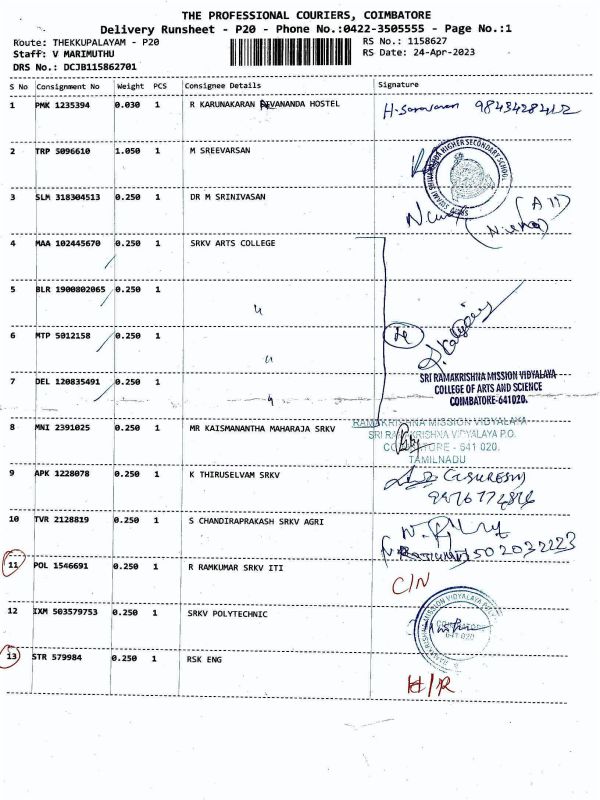 THE PROFESSIONAL COURIERS, COIMBATORE
Delivery Runsheet - P20 - Phone No.:0422-3505555 - Page No.:1
Route: THEKKUPALAYAM - P20 RS No.: 1158627
Staff: V MARIMUTHU RS Date: 24-Apr-2023
DRS No.: DCJB115862701
S No Consignment No Weight PCS Consignee Details Signature
1 PMK 1235394 0.030 1 R KARUNAKARAN DEVANANDA HOSTEL 9843428412
2 TRP 5096610 1.050 1 M SREEVARSAN
3 SLM 318304513 0.250 1 DR M SRINIVASAN
4 MAA 102445670 0.250 1 SRKV ARTS COLLEGE
5 BLR 1900802065 0.250 1
6 MTP 5012158 0.250 1
7 DEL 120835491 0.250 1
SRI RAMAKRISHNA MISSION VIDYALAYA
COLLEGE OF ARTS AND SCIENCE
COIMBATORE-641020.
8 MNI 2391025 0.250 1 MR KAISMANANTHA MAHARAJA SRKV
RAMAKRISHNA MISSION VIDYALAYA
SRI RAMAKRISHNA VIDYALAYA P.O.
COIMBATORE - 641 020.
TAMILNADU
9 APK 1228078 0.250 1 K THIRUSELVAM SRKV
10 TVR 2128819 0.250 1 S CHANDIRAPRAKASH SRKV AGRI
11 POL 1546691 0.250 1 R RAMKUMAR SRKV ITI C/N
12 IXM 503579753 0.250 1 SRKV POLYTECHNIC
13 STR 579984 0.250 1 RSK ENG H/R